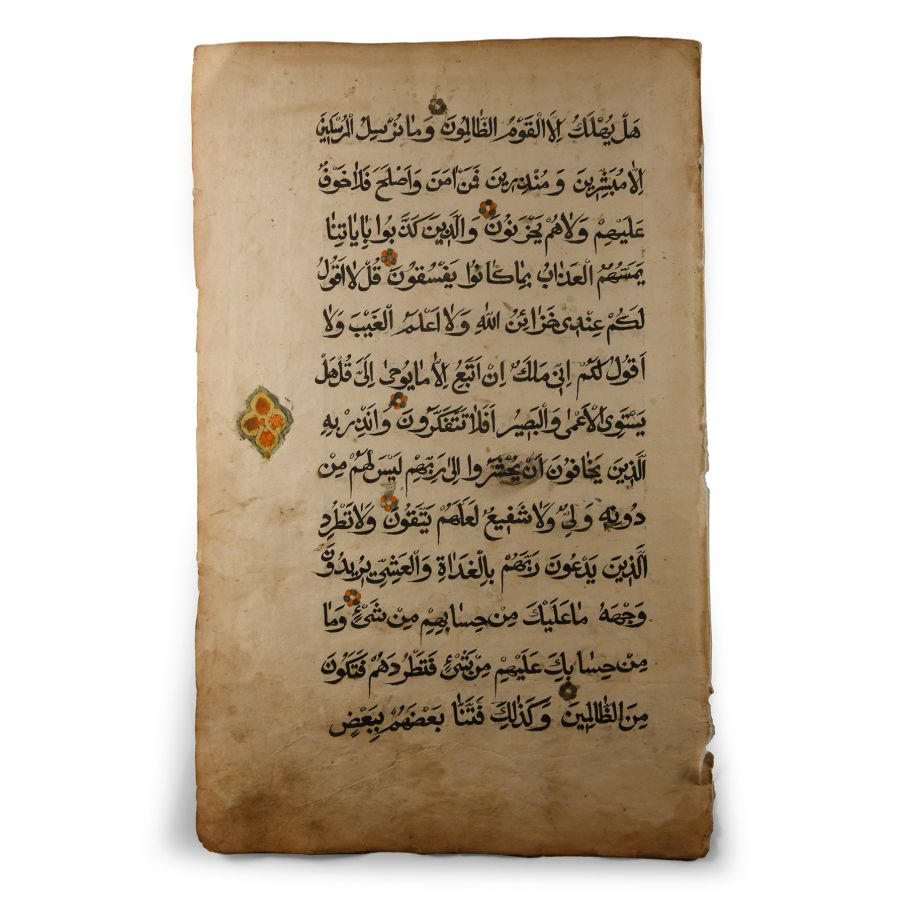 هَلْ يُهْلَكُ اِلَّا الْقَوْمُ الظَّالِمُونَ وَمَا نُرْسِلُ الْمُرْسَلِينَ
اِلَّا مُبَشِّرِينَ وَمُنْذِرِينَ فَمَنْ اٰمَنَ وَاَصْلَحَ فَلَا خَوْفٌ
عَلَيْهِمْ وَلَا هُمْ يَحْزَنُونَ وَالَّذِينَ كَذَّبُوا بِاٰيَاتِنَا
يَمَسُّهُمُ الْعَذَابُ بِمَا كَانُوا يَفْسُقُونَ قُلْ لَا اَقُولُ
لَكُمْ عِنْدِي خَزَائِنُ اللهِ وَلَا اَعْلَمُ الْغَيْبَ وَلَا
اَقُولُ لَكُمْ اِنِّي مَلَكٌ اِنْ اَتَّبِعُ اِلَّا مَا يُوحٰى اِلَيَّ قُلْ هَلْ
يَسْتَوِي الْاَعْمٰى وَالْبَصِيرُ اَفَلَا تَتَفَكَّرُونَ وَاَنْذِرْ بِهِ
الَّذِينَ يَخَافُونَ اَنْ يُحْشَرُوا اِلٰى رَبِّهِمْ لَيْسَ لَهُمْ مِنْ
دُونِهِ وَلِيٌّ وَلَا شَفِيعٌ لَعَلَّهُمْ يَتَّقُونَ وَلَا تَطْرُدِ
الَّذِينَ يَدْعُونَ رَبَّهُمْ بِالْغَدَاةِ وَالْعَشِيِّ يُرِيدُونَ
وَجْهَهُ مَا عَلَيْكَ مِنْ حِسَابِهِمْ مِنْ شَيْءٍ وَمَا
مِنْ حِسَابِكَ عَلَيْهِمْ مِنْ شَيْءٍ فَتَطْرُدَهُمْ فَتَكُونَ
مِنَ الظَّالِمِينَ وَكَذٰلِكَ فَتَنَّا بَعْضَهُمْ بِبَعْضٍ